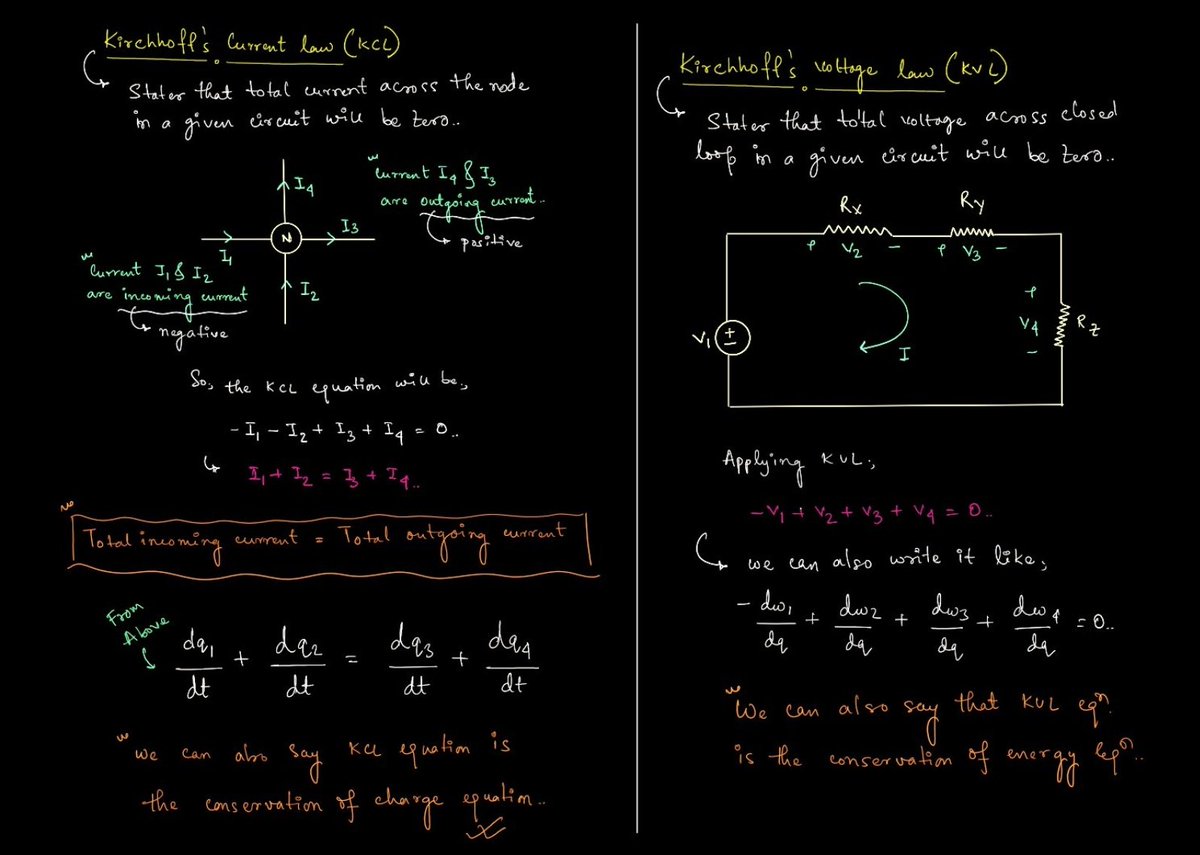 Kirchhoff's Current law (KCL)
States that total current across the node
in a given circuit will be zero..
I4
"Current I4 & I3
are outgoing current..
positive
N
I3
I1
I2
"Current I1 & I2
are incoming current
negative
So, the KCL equation will be,
-I1 - I2 + I3 + I4 = 0..
I1 + I2 = I3 + I4..
Total incoming current = Total outgoing current
From
Above
dq1/dt + dq2/dt = dq3/dt + dq4/dt
"we can also say KCL equation is
the conservation of charge equation..
Kirchhoff's voltage law (KVL)
States that total voltage across closed
loop in a given circuit will be zero..
Rx Ry
+ V2 - + V3 -
V1 + -
I
+
V4
-
Rz
Applying KVL,
-V1 + V2 + V3 + V4 = 0..
we can also write it like,
- dw1/dq + dw2/dq + dw3/dq + dw4/dq = 0..
"We can also say that KVL eqn.
is the conservation of energy eqn..